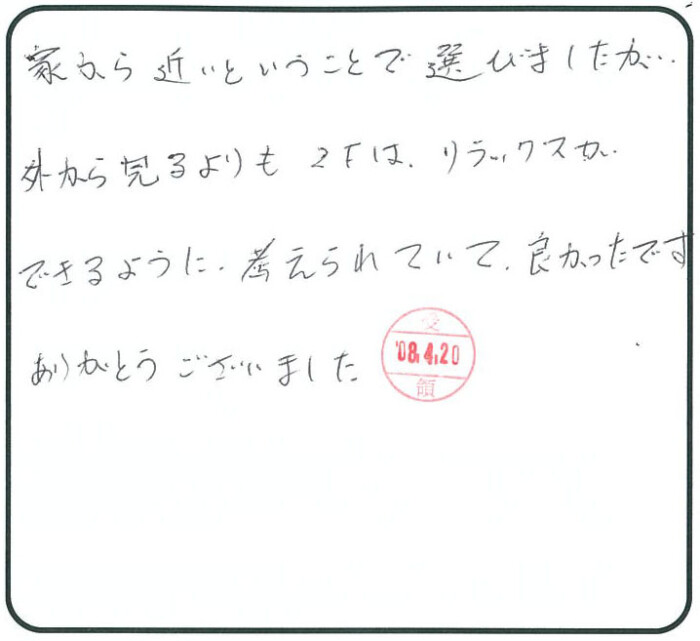 家から近いということで選びましたが..
外から見るよりも 2Fは、リラックスが
できるように、考えられていて、良かったです
ありがとうございました
受
'08.4.20
領